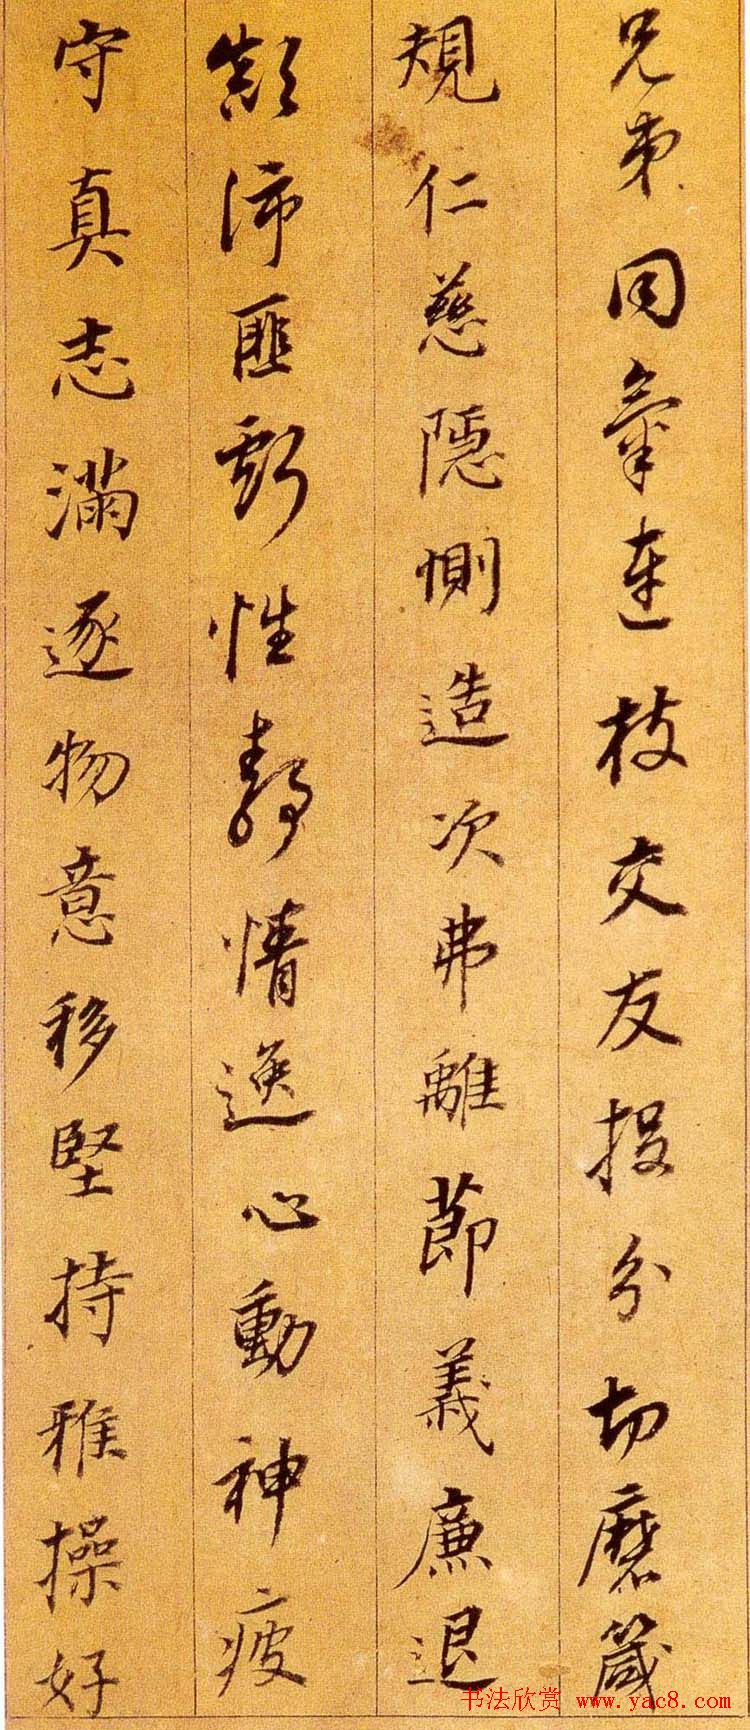 兄弟同氣連枝交友投分切磨箴
規仁慈隱惻造次弗離節義廉退
顛沛匪虧性靜情逸心動神疲
守真志滿逐物意移堅持雅操好
书法欣赏 www.yac8.com